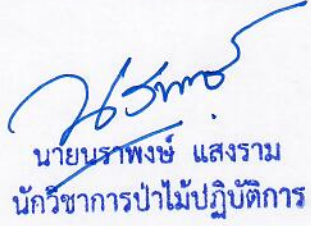 นายนราพงษ์ แสงราม
นักวิชาการป่าไม้ปฏิบัติการ